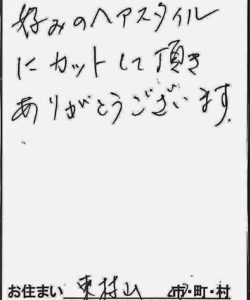 好みのヘアスタイル
にカットして頂き
ありがとうございます.
お住まい 東村山 市・町・村